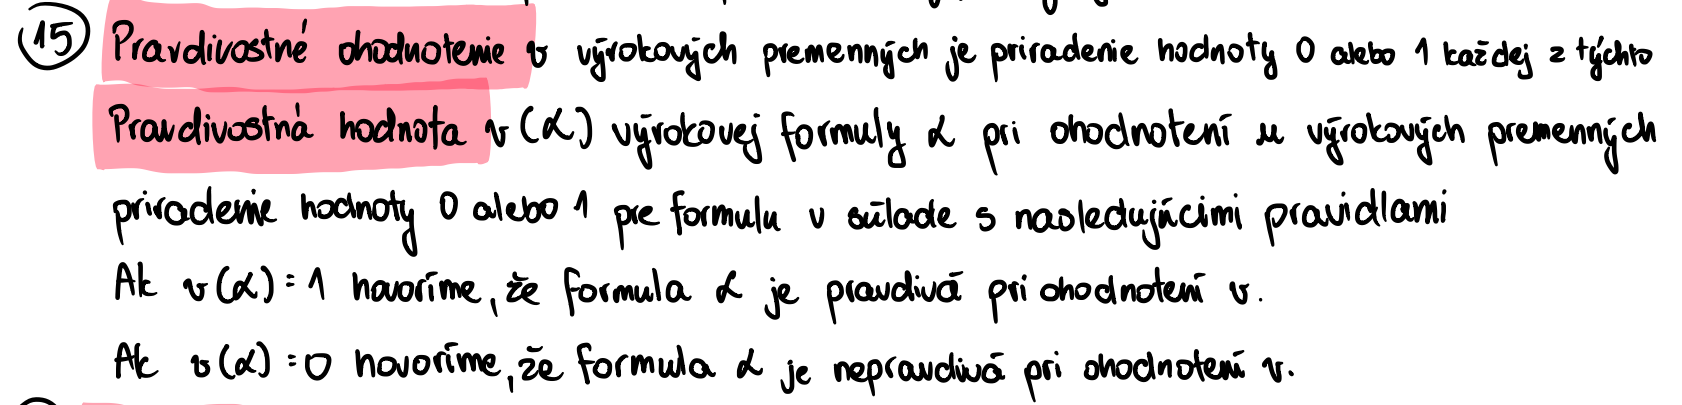 15 Pravdivostné ohodnotenie v výrokových premenných je priradenie hodnoty 0 alebo 1 každej z týchto
Pravdivostná hodnota v(α) výrokovej formuly α pri ohodnotení u výrokových premenných
priradenie hodnoty 0 alebo 1 pre formulu v súlade s nasledujúcimi pravidlami
Ak v(α)=1 hovoríme, že formula α je pravdivá pri ohodnotení v.
Ak v(α)=0 hovoríme, že formula α je nepravdivá pri ohodnotení v.